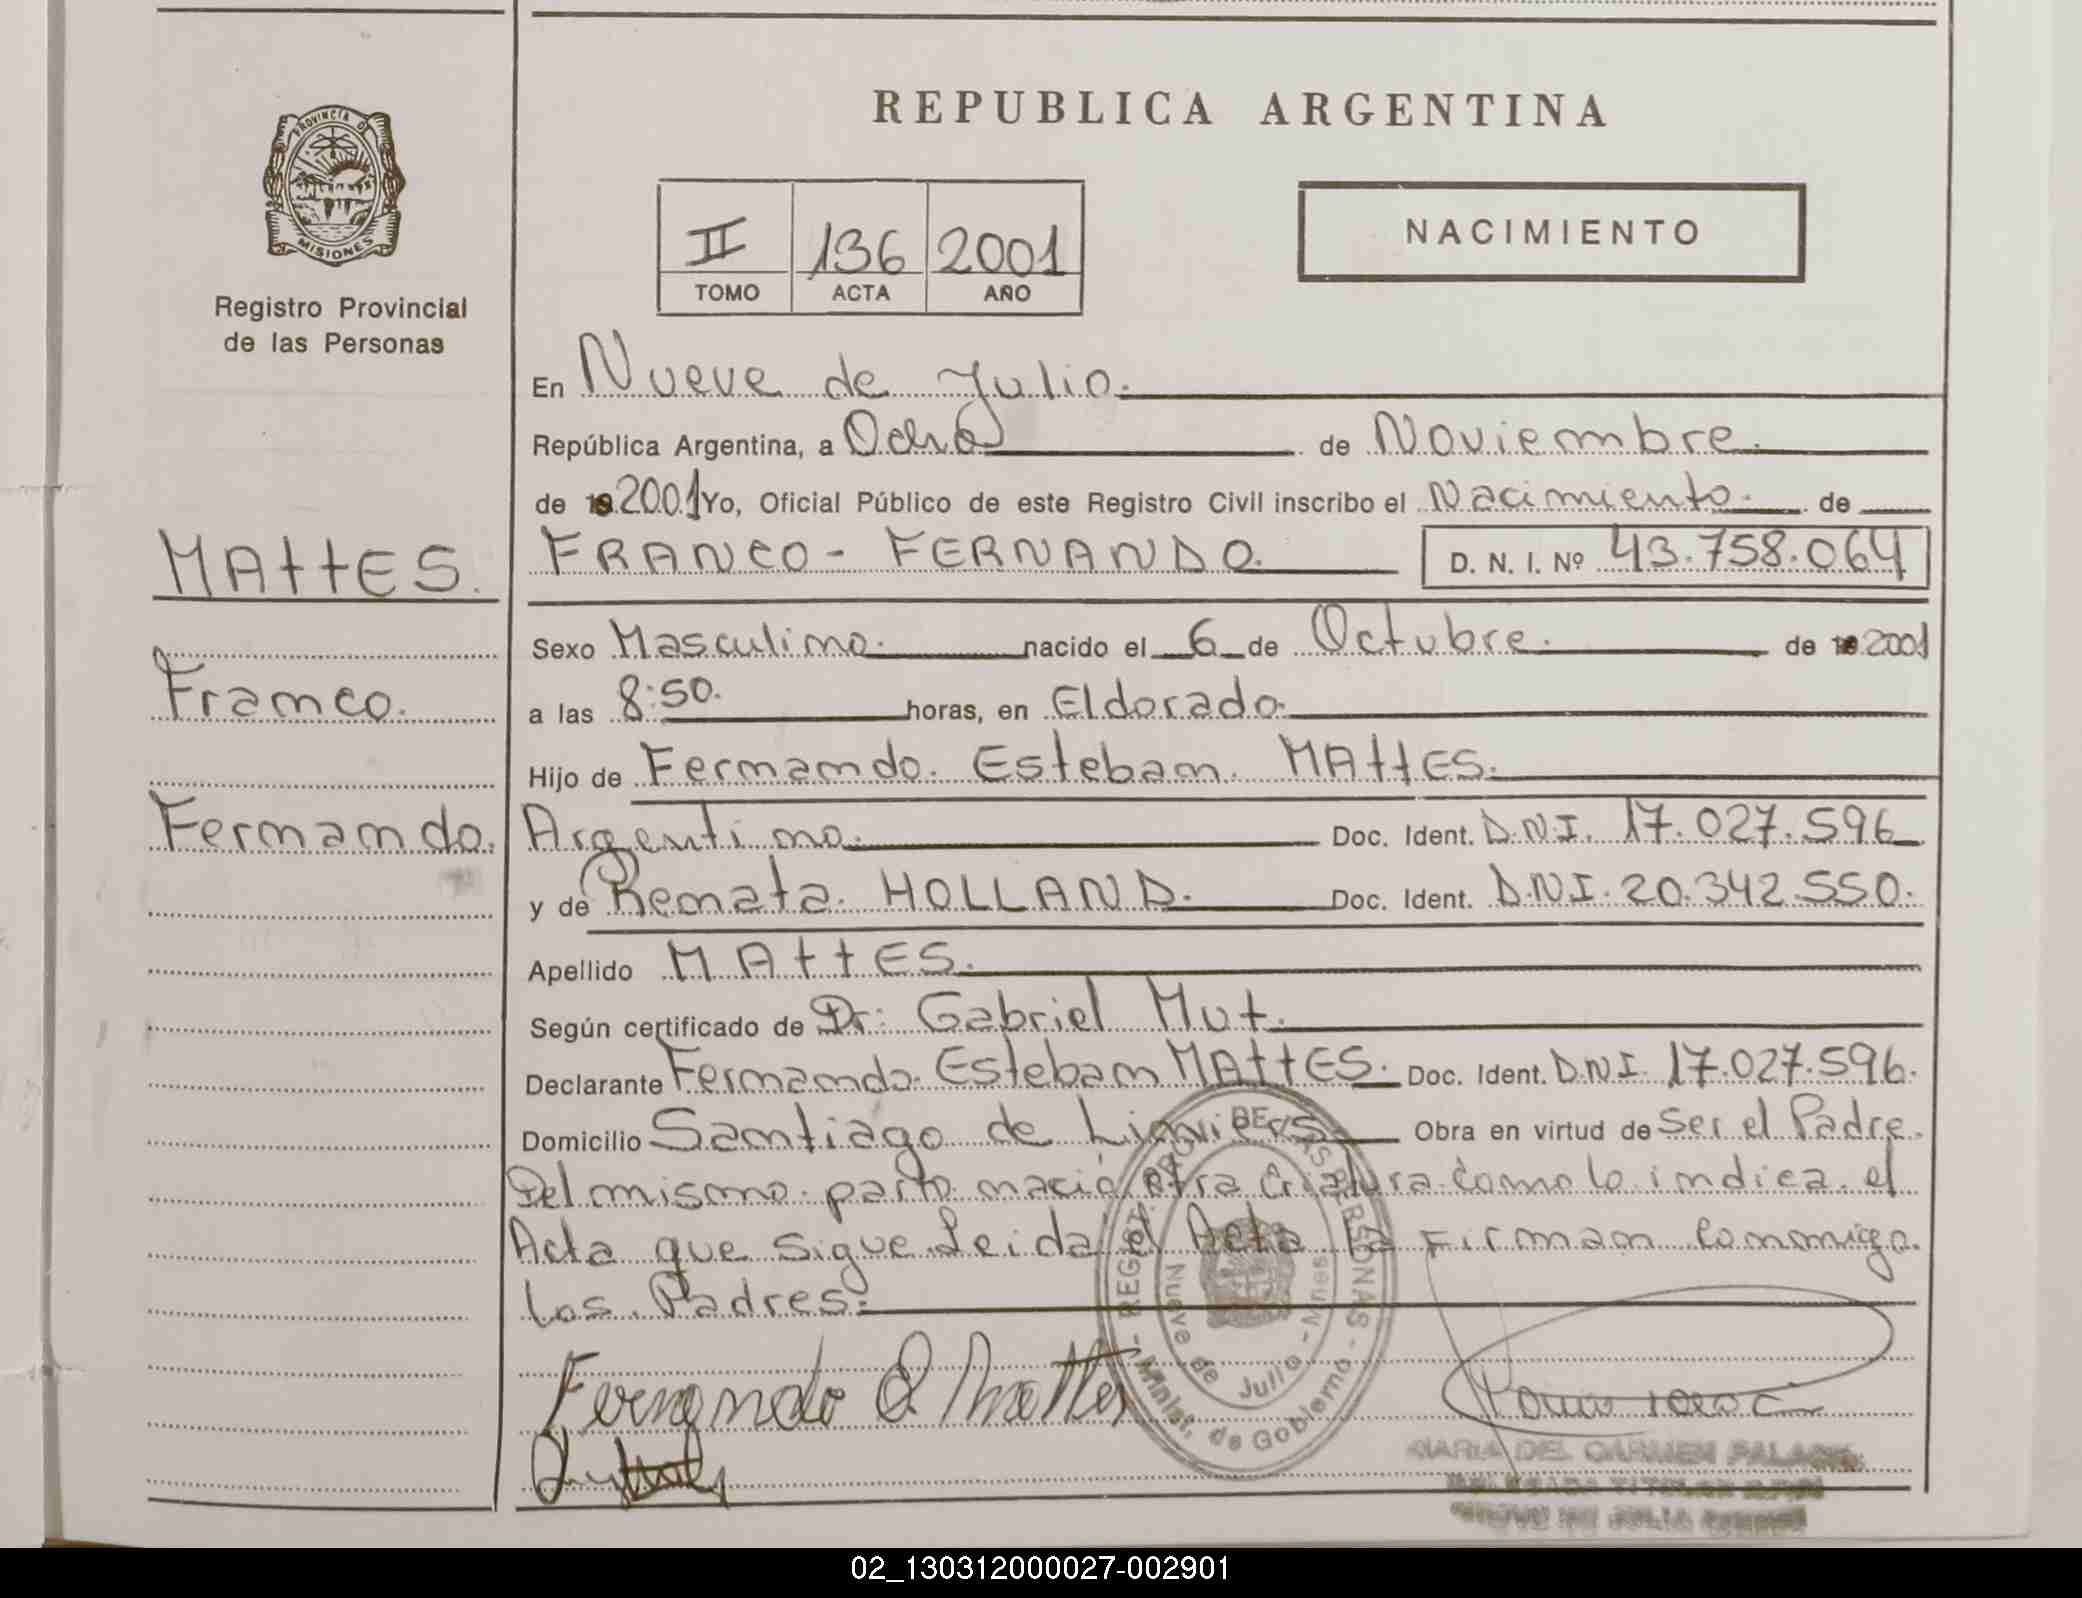 REPUBLICA ARGENTINA
PROVINCIA D
MISIONES
Registro Provincial
de las Personas
II 136 2001
TOMO ACTA AÑO
NACIMIENTO
En Nueve de Julio.
República Argentina, a Ocho de Noviembre.
de 19 2001 Yo, Oficial Público de este Registro Civil inscribo el Nacimiento. de
MAttES.
FRANCO - FERNANDO. D. N. I. Nº 43.758.064
Sexo Masculino. nacido el 6 de Octubre. de 19 2001
Franco.
a las 8:50. horas, en Eldorado.
Hijo de Fernando. Esteban. MAttES.
Fernando.
Argentino. Doc. Ident. D.N.I. 17.027.596
y de Renata. HOLLAND. Doc. Ident. D.N.I. 20.342.550.
Apellido MAttES.
Según certificado de Dr. Gabriel Mut.
Declarante Fernando. Esteban MAttES. Doc. Ident. D.N.I. 17.027.596.
Domicilio Santiago de Liniers Obra en virtud de Ser el Padre.
Del mismo parto nació otra Criatura como lo indica el
Acta que sigue Leida el Acta la Firman Conmigo.
los Padres.
REGIST. PROVI DE LAS PERSONAS
Nueve de Julio - Mnes
Minist. de Gobierno
Fernando E Mattes
MARIA DEL CARMEN PALACIO
02_130312000027-002901